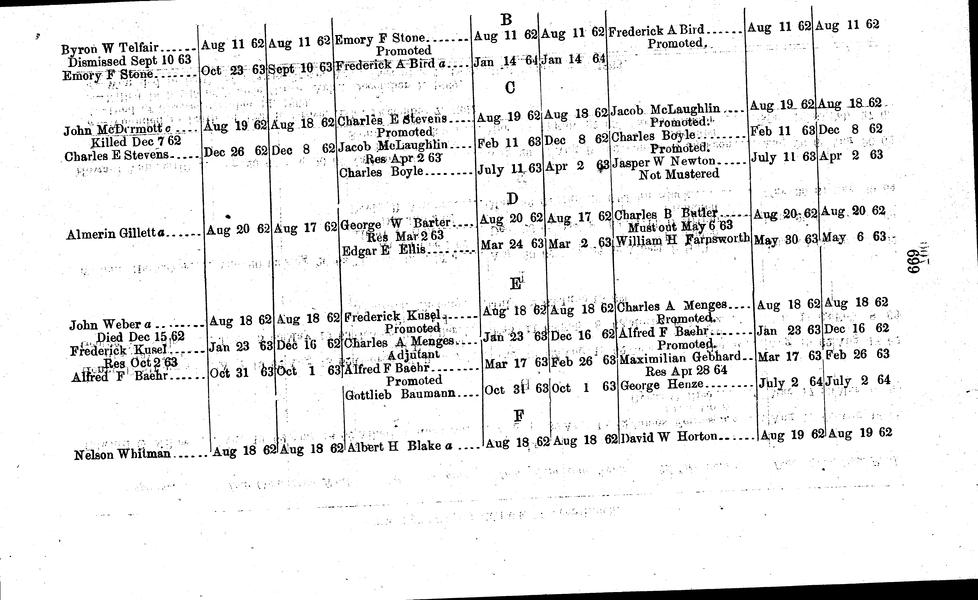 B
Byron W Telfair...... Aug 11 62 Aug 11 62 Emory F Stone....... Aug 11 62 Aug 11 62 Frederick A Bird...... Aug 11 62 Aug 11 62
Dismissed Sept 10 63 Promoted Promoted.
Emory F Stone........ Oct 23 63 Sept 10 63 Frederick A Bird a.... Jan 14 64 Jan 14 64
C
John McDermott c.... Aug 19 62 Aug 18 62 Charles E Stevens.... Aug 19 62 Aug 18 62 Jacob McLaughlin.... Aug 19 62 Aug 18 62
Killed Dec 7 62 Promoted Promoted.
Charles E Stevens..... Dec 26 62 Dec 8 62 Jacob McLaughlin.... Feb 11 63 Dec 8 62 Charles Boyle........ Feb 11 63 Dec 8 62
Res Apr 2 63 Promoted.
Charles Boyle........ July 11 63 Apr 2 63 Jasper W Newton..... July 11 63 Apr 2 63
Not Mustered
D
Almerin Gillett a....... Aug 20 62 Aug 17 62 George W Barter.... Aug 20 62 Aug 17 62 Charles B Butler..... Aug 20 62 Aug 20 62
Res Mar 2 63 Must out May 6 63
Edgar E Ellis......... Mar 24 63 Mar 2 63 William H Farnsworth May 30 63 May 6 63
669
E
John Weber a ....... Aug 18 62 Aug 18 62 Frederick Kusel..... Aug 18 62 Aug 18 62 Charles A Menges.... Aug 18 62 Aug 18 62
Died Dec 15 62 Promoted Promoted.
Frederick Kusel...... Jan 23 63 Dec 16 62 Charles A Menges.... Jan 23 63 Dec 16 62 Alfred F Baehr....... Jan 23 63 Dec 16 62
Res Oct 2 63 Adjutant Promoted.
Alfred F Baehr...... Oct 31 63 Oct 1 63 Alfred F Baehr....... Mar 17 63 Feb 26 63 Maximilian Gebhard.. Mar 17 63 Feb 26 63
Promoted Res Apr 28 64
Gottlieb Baumann.... Oct 31 63 Oct 1 63 George Henze........ July 2 64 July 2 64
F
Nelson Whitman...... Aug 18 62 Aug 18 62 Albert H Blake a .... Aug 18 62 Aug 18 62 David W Horton...... Aug 19 62 Aug 19 62